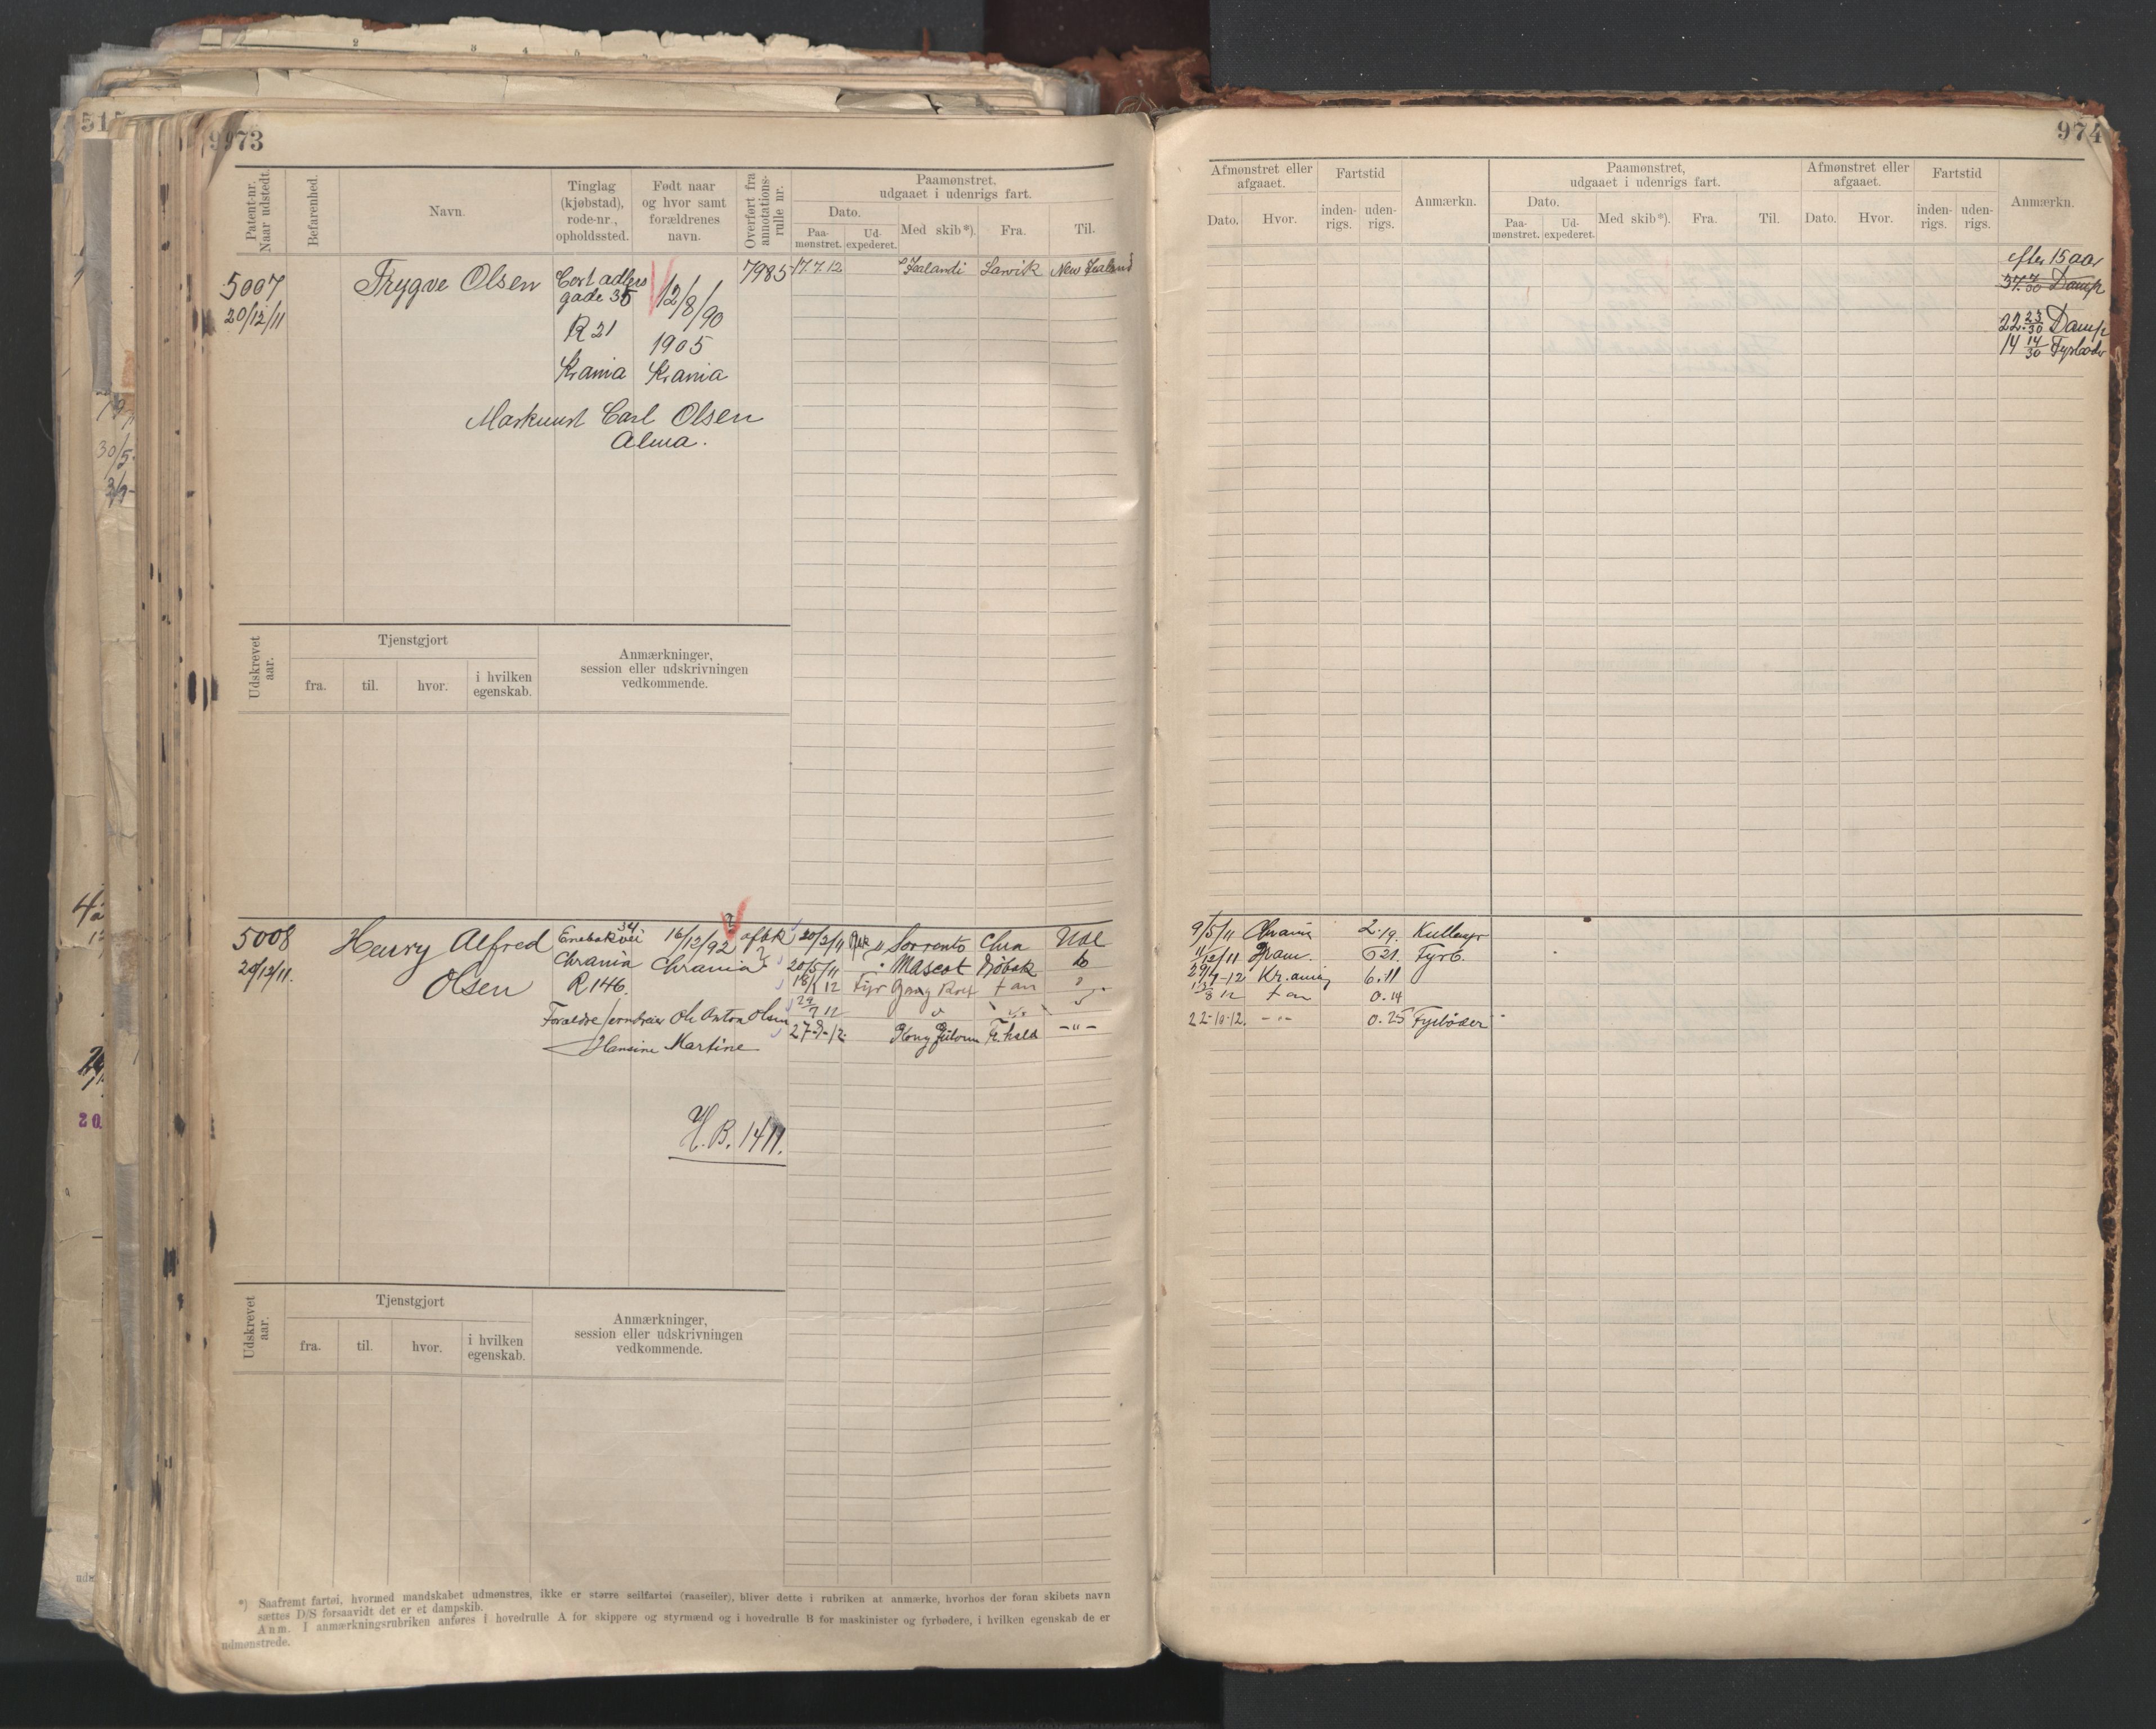 973
Patent-nr. Naar udstedt.
Befarenhed.
Navn.
Tinglag (kjøbstad), rode-nr., opholdssted.
Født naar og hvor samt forældrenes navn.
Overført fra annotations-rulle nr.
Paamønstret, udgaaet i udenrigs fart.
Dato.
Paa-mønstret.
Ud-expederet.
Med skib*).
Fra.
Til.
5007
20/12/11
Trygve Olsen
Cort adlers
gade 35
R 21
Krania
12/8/90
1905
Krania
7985
17.7.12
Sealandi
Larvik
New Zealand
Carl Olsen
Alma.
Udskrevet aar.
Tjenstgjort
fra.
til.
hvor.
i hvilken egenskab.
Anmærkninger, session eller udskrivningen vedkommende.
5008
20/12/11.
Henry Alfred
Olsen
Enebakvei 34
Chrania
R 146.
16/12/92
Chrania
Forældre Ole Anton Olsen
Hansine Martine
H.B. 1411.
20/2/11 Sorrento Chra Udl
20/5/11 Mascot
18/1 12 Fyr
29/7 12
27-9-12 Kong Fr.hald -"-
Udskrevet aar.
Tjenstgjort
fra.
til.
hvor.
i hvilken egenskab.
Anmærkninger, session eller udskrivningen vedkommende.
*) Saafremt fartøi, hvormed mandskabet udmønstres, ikke er større seilfartøi (raaseiler), bliver dette i rubriken at anmærke, hvorhos der foran skibets navn
sættes D/S forsaavidt det er et dampskib.
Anm. I anmærkningsrubriken anføres i hovedrulle A for skippere og styrmænd og i hovedrulle B for maskinister og fyrbødere, i hvilken egenskab de er
udmønstrede.
974
Afmønstret eller afgaaet.
Dato.
Hvor.
Fartstid
inden-rigs.
uden-rigs.
Anmærkn.
Paamønstret, udgaaet i udenrigs fart.
Dato.
Paa-mønstret.
Ud-expederet.
Med skib*).
Fra.
Til.
Afmønstret eller afgaaet.
Dato.
Hvor.
Fartstid
inden-rigs.
uden-rigs.
Anmærkn.
efter 15 aar
37 7/30 Damp
22 23/30 Damp
14 14/30 Fyrbøder
9/5/11 Chrania 2.19.
11/12/11 6 21. Fyrb.
6.11
0.14
22-10-12. -"- 0.25 Fyrbøder